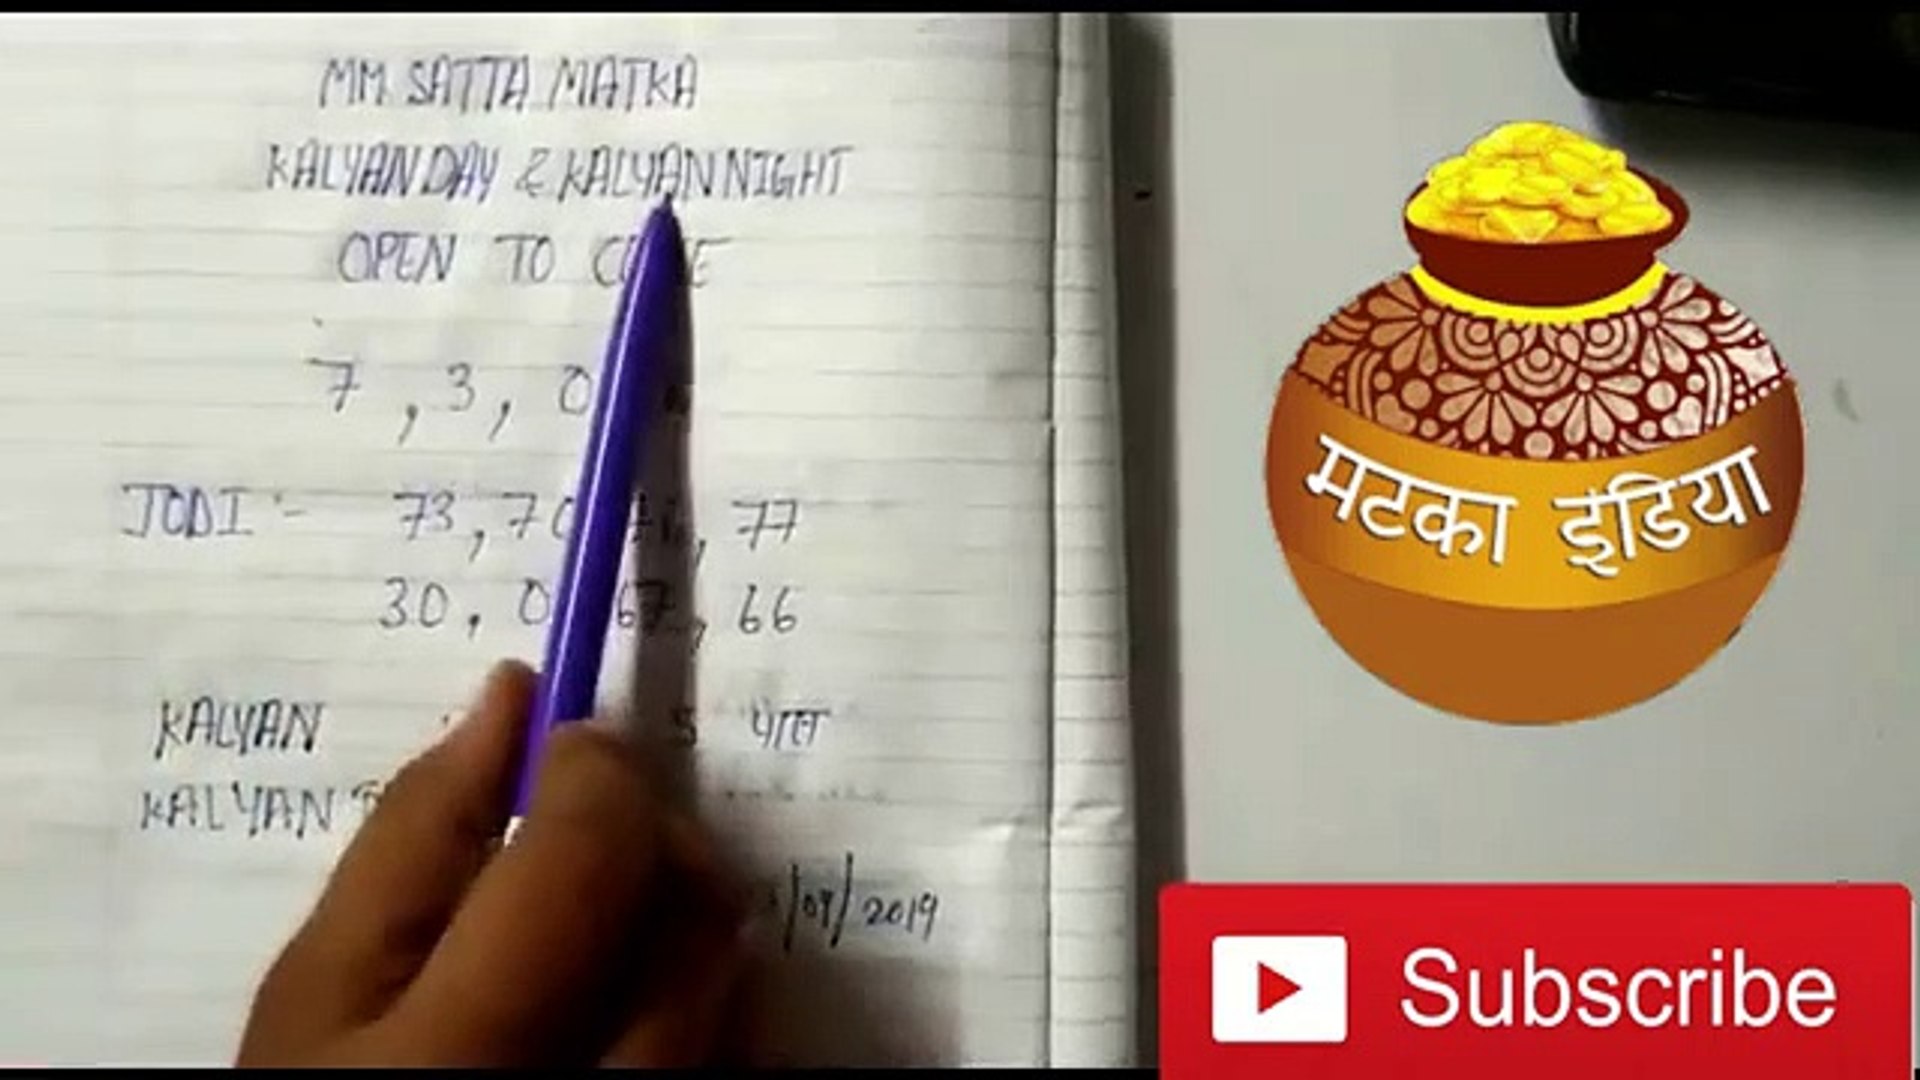 MM SATTA MATKA
KALYAN DAY & KALYAN NIGHT
OPEN TO
7, 3, 0
JODI :- 73, 70, 77
30, 67, 66
KALYAN
KALYAN
/09/2019
मटका इंडिया
Subscribe